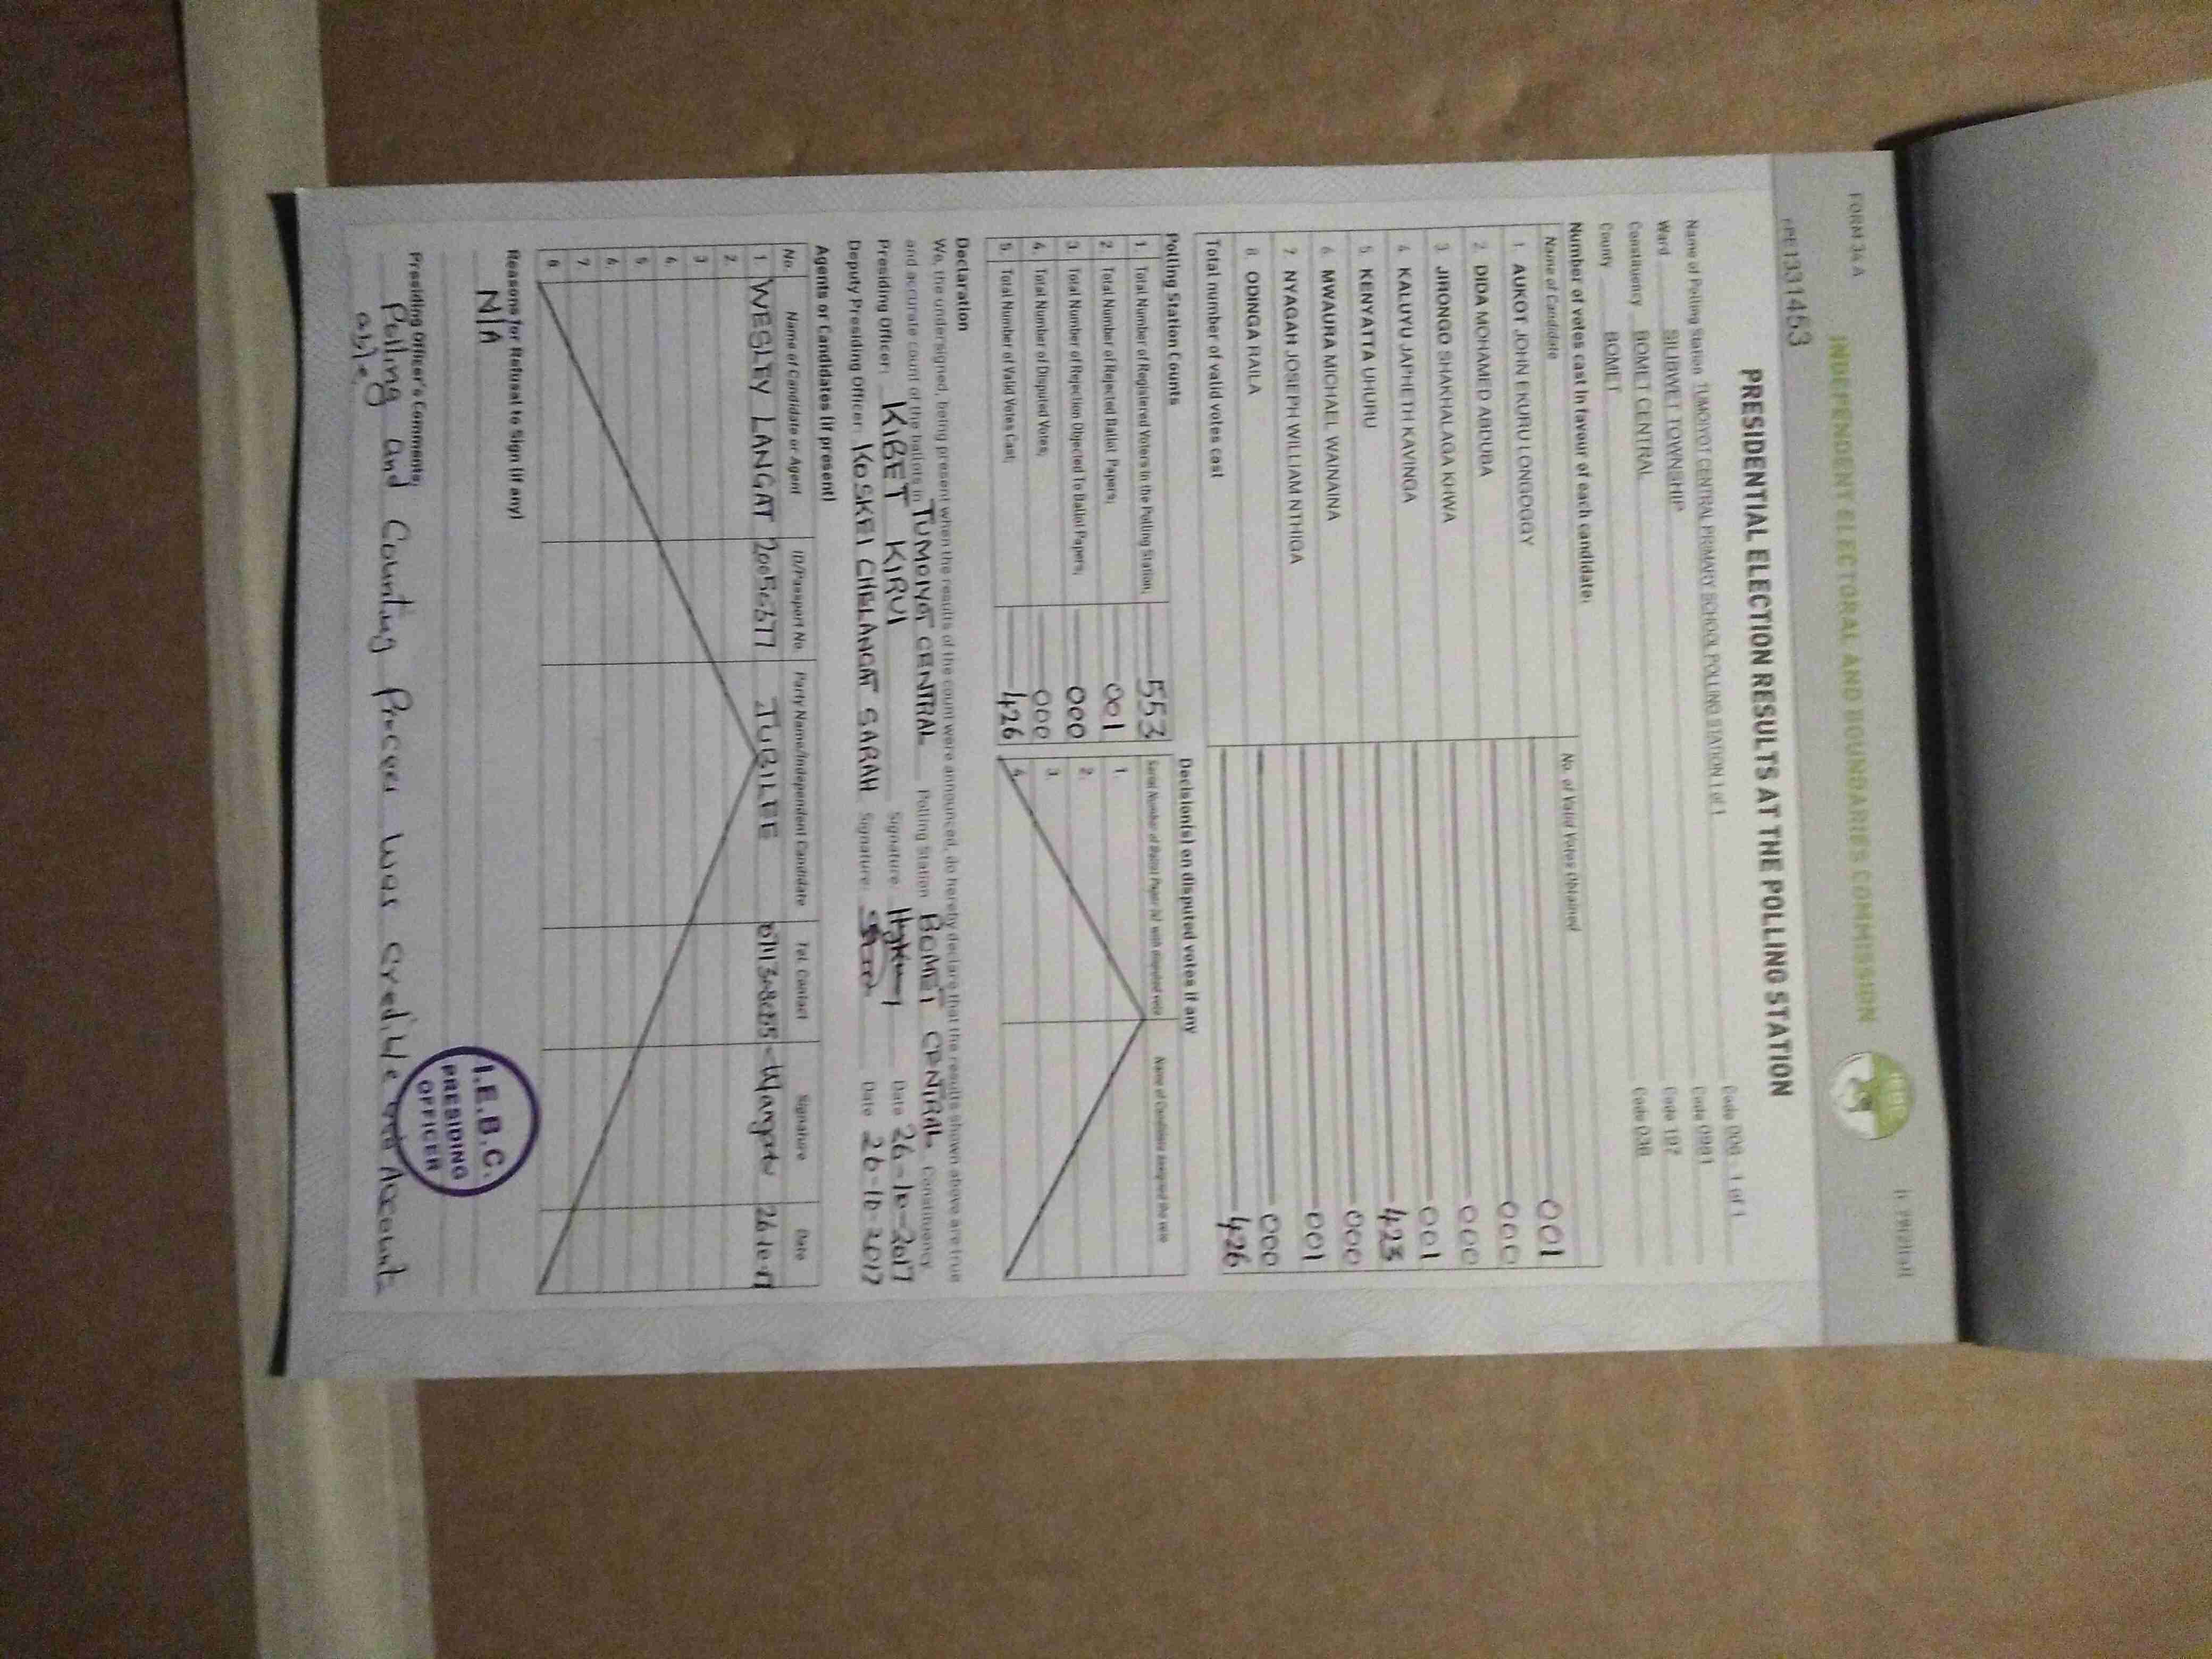 FORM 34 A
INDEPENDENT ELECTORAL AND BOUNDARIES COMMISSION
IEBC
PRE1331453
PRESIDENTIAL ELECTION RESULTS AT THE POLLING STATION
Name of Polling Station TUMOIYOT CENTRAL PRIMARY SCHOOL POLLING STATION 1 of 1 Code 008 - 1 of 1
Ward SILIBWET TOWNSHIP Code 0981
Constituency BOMET CENTRAL Code 197
County BOMET Code 036
Number of votes cast in favour of each candidate:
Name of Candidate No. of Valid Votes Obtained
1. AUKOT JOHN EKURU LONGOGGY 001
2. DIDA MOHAMED ABDUBA 000
3. JIRONGO SHAKHALAGA KHWA 000
4. KALUYU JAPHETH KAVINGA 001
5. KENYATTA UHURU 423
6. MWAURA MICHAEL WAINAINA 000
7. NYAGAH JOSEPH WILLIAM NTHIGA 001
8. ODINGA RAILA 000
Total number of valid votes cast 426
Polling Station Counts
1. Total Number of Registered Voters in the Polling Station; 553
2. Total Number of Rejected Ballot Papers; 001
3. Total Number of Rejection Objected To Ballot Papers; 000
4. Total Number of Disputed Votes; 000
5. Total Number of Valid Votes Cast; 426
Decision(s) on disputed votes if any
Serial Number of Ballot Paper (s) with disputed vote Name of Candidate assigned the vote
1.
2.
3.
4.
Declaration
We, the undersigned, being present when the results of the count were announced, do hereby declare that the results shown above are true
and accurate count of the ballots in TUMOIYOT CENTRAL Polling Station BOMET CENTRAL Constituency.
Presiding Officer: KIBET KIRUI Signature: Date 26-10-2017
Deputy Presiding Officer: KOSKEI CHELANGAT SARAH Signature: Date 26-10-2017
Agents or Candidates (if present)
No. Name of Candidate or Agent ID/Passport No. Party Name/Independent Candidate Tel. Contact Signature Date
1. WESLEY LANGAT JUBILEE 26-10-17
2.
3.
4.
5.
6.
7.
8.
Reasons for Refusal to Sign (if any)
N/A
Presiding Officer's Comments;
Polling and Counting Process was Credible and Account
able
I.E.B.C.
PRESIDING
OFFICER